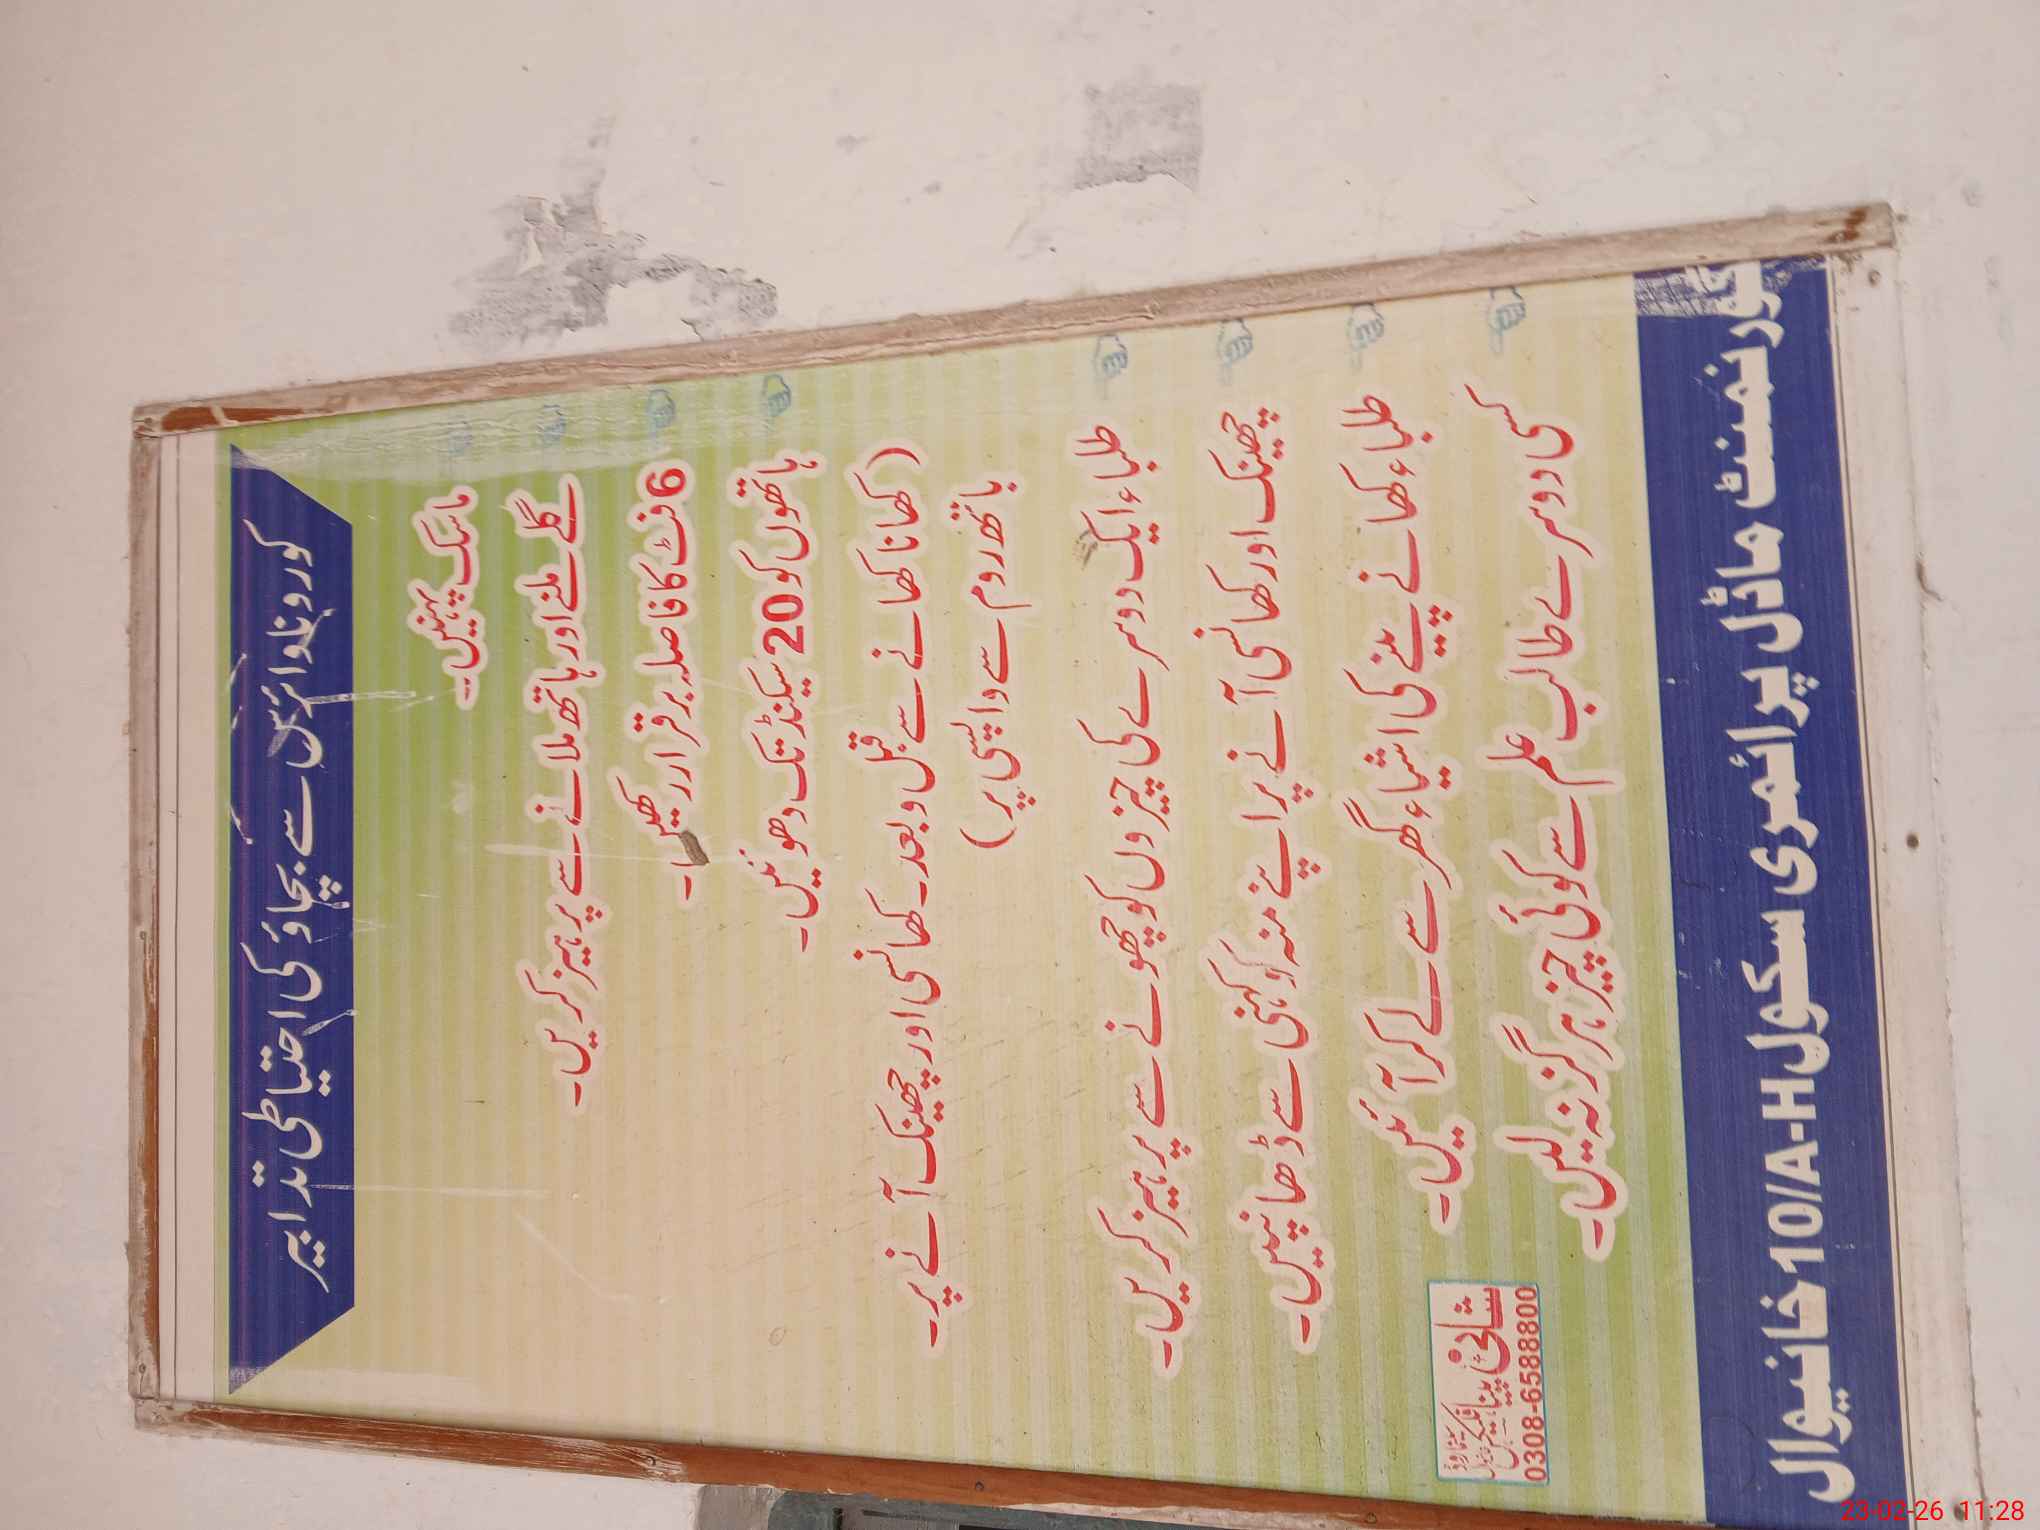 کورونا وائرس سے بچاؤ کی احتیاطی تدابیر
ماسک پہنیں۔
گلے ملنے اور ہاتھ ملانے سے پرہیز کریں۔
6 فٹ کا فاصلہ برقرار رکھیں۔
ہاتھوں کو 20 سیکنڈ تک دھوئیں۔
(کھانا کھانے سے قبل و بعد۔ کھانسی اور چھینک آنے پر۔
باتھ روم سے واپسی پر)
طلباء ایک دوسرے کی چیزوں کو چھونے سے پرہیز کریں۔
چھینک اور کھانسی آنے پر اپنے منہ کو کہنی سے ڈھانپیں۔
طلباء کھانے پینے کی اشیاء گھر سے لے کر آئیں۔
کسی دوسرے طالب علم سے کوئی چیز ہرگز نہ لیں۔
شانی پینا فلیکس
0308-6588800
گورنمنٹ ماڈل پرائمری سکول 10/A-H خانیوال
23-02-26 11:28